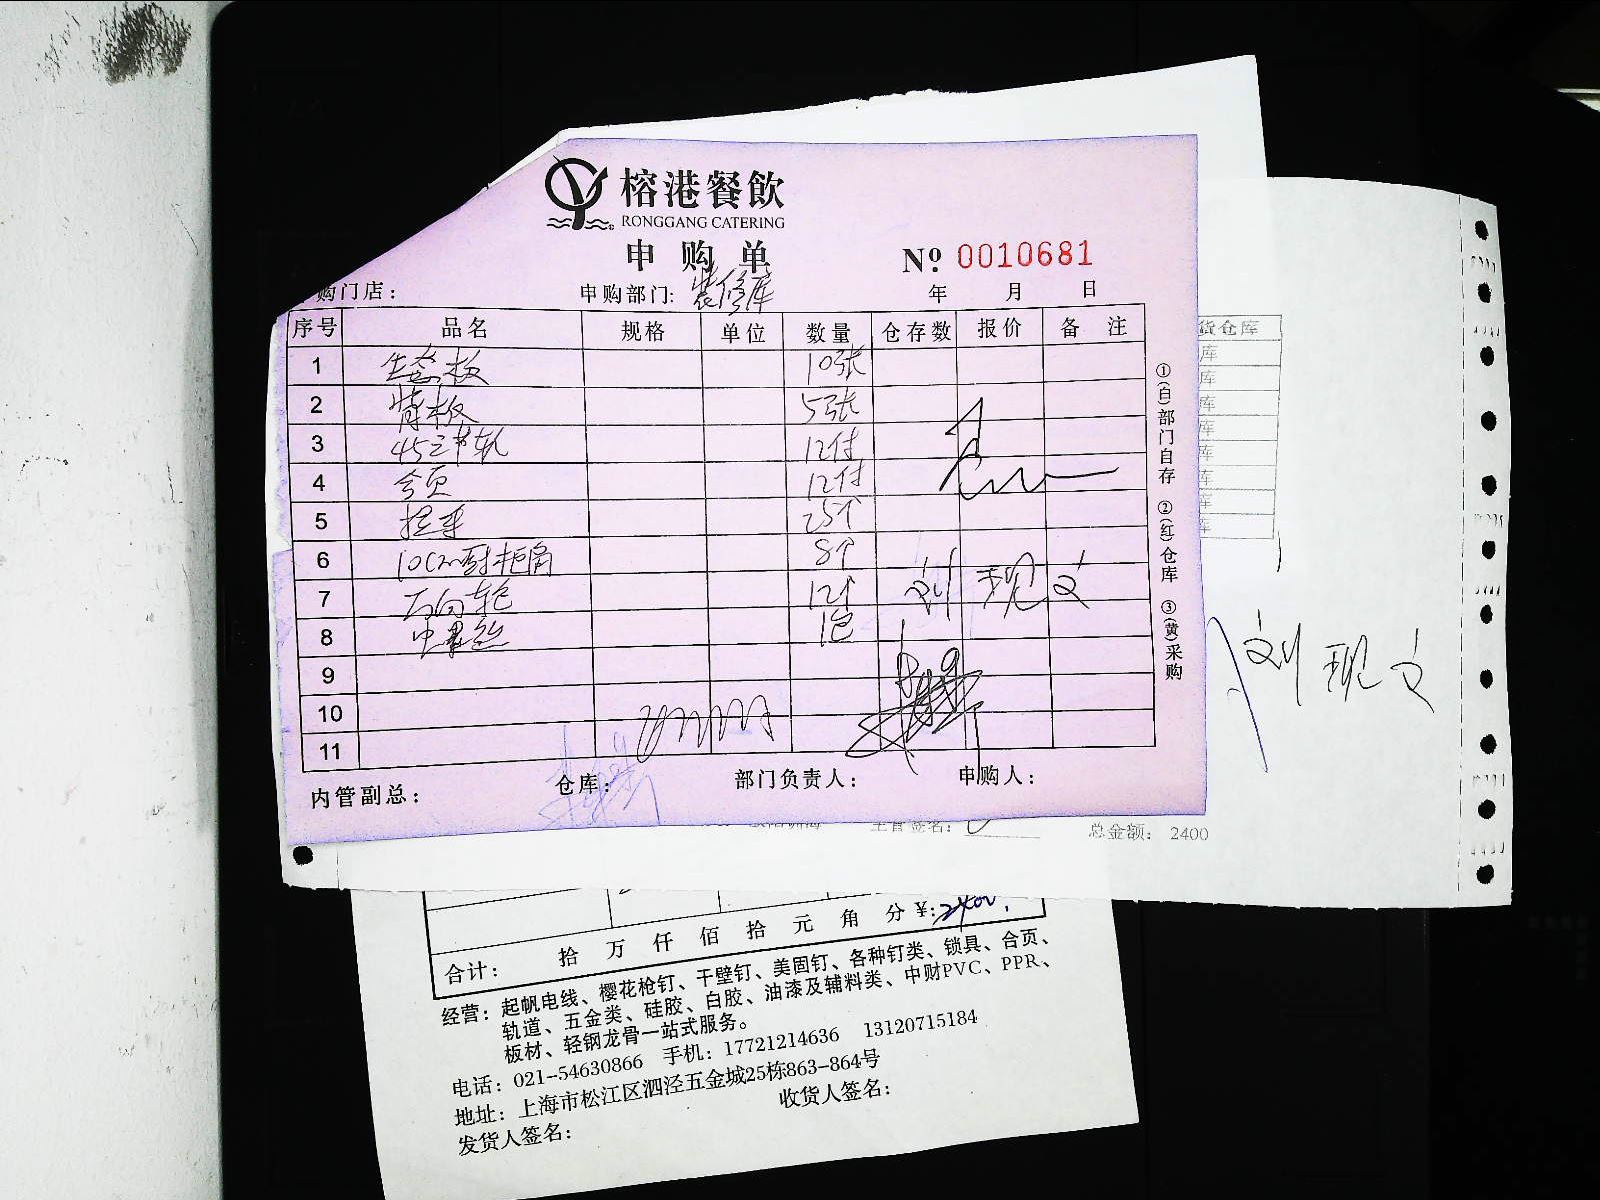 榕港餐飲
RONGGANG CATERING
申购单
№ 0010681
购门店： 申购部门: 装修库 年 月 日
序号 品名 规格 单位 数量 仓存数 报价 备 注
1 生态板 10张
2 背板 5张
3 45三节轨 12付
4 合页 12付
5 拉手 25个
6 10cm橱柜角 8个
7 万向轮 12个
8 1包
9
10
11
刘现文
内管副总： 仓库： 部门负责人： 申购人：
①(白)部门自存 ②(红)仓库 ③(黄)采购
货仓库
库
库
库
库
库
库
库
库
刘现文
主管签名： 总金额： 2400
合计： 拾 万 仟 佰 拾 元 角 分 ¥: 2400.
经营：起帆电线、樱花枪钉、干壁钉、美固钉、各种钉类、锁具、合页、
轨道、五金类、硅胶、白胶、油漆及辅料类、中财PVC、PPR、
板材、轻钢龙骨一站式服务。
电话：021-54630866 手机：17721214636 13120715184
地址：上海市松江区泗泾五金城25栋863-864号
发货人签名： 收货人签名：